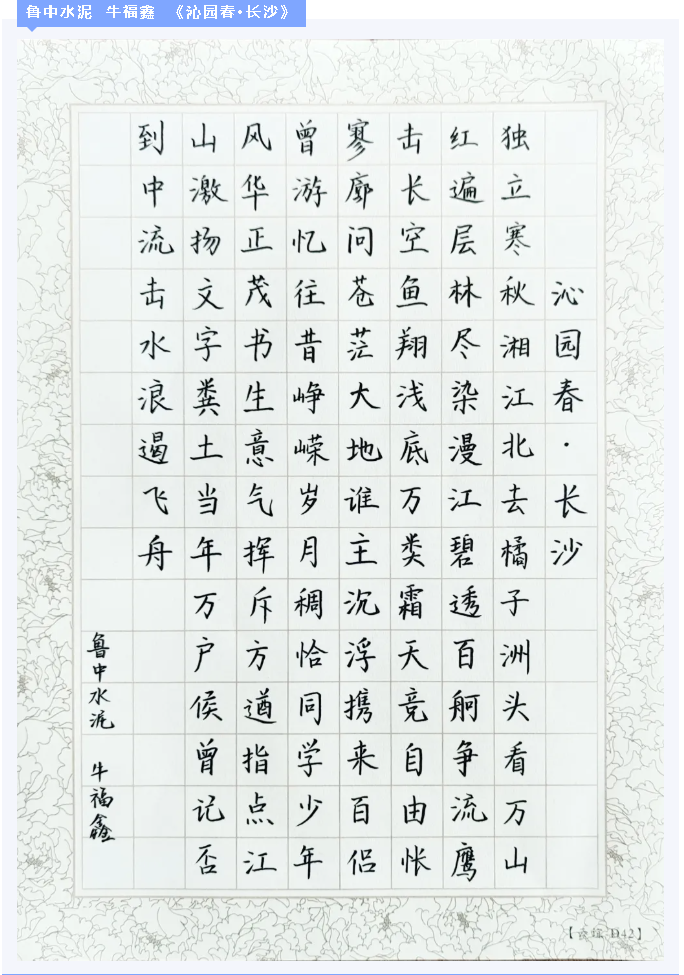 鲁中水泥 牛福鑫 《沁园春·长沙》
沁园春·长沙
独立寒秋湘江北去橘子洲头看万山
红遍层林尽染漫江碧透百舸争流鹰
击长空鱼翔浅底万类霜天竞自由怅
寥廓问苍茫大地谁主沉浮携来百侣
曾游忆往昔峥嵘岁月稠恰同学少年
风华正茂书生意气挥斥方遒指点江
山激扬文字粪土当年万户侯曾记否
到中流击水浪遏飞舟
鲁中水泥 牛福鑫
D42】